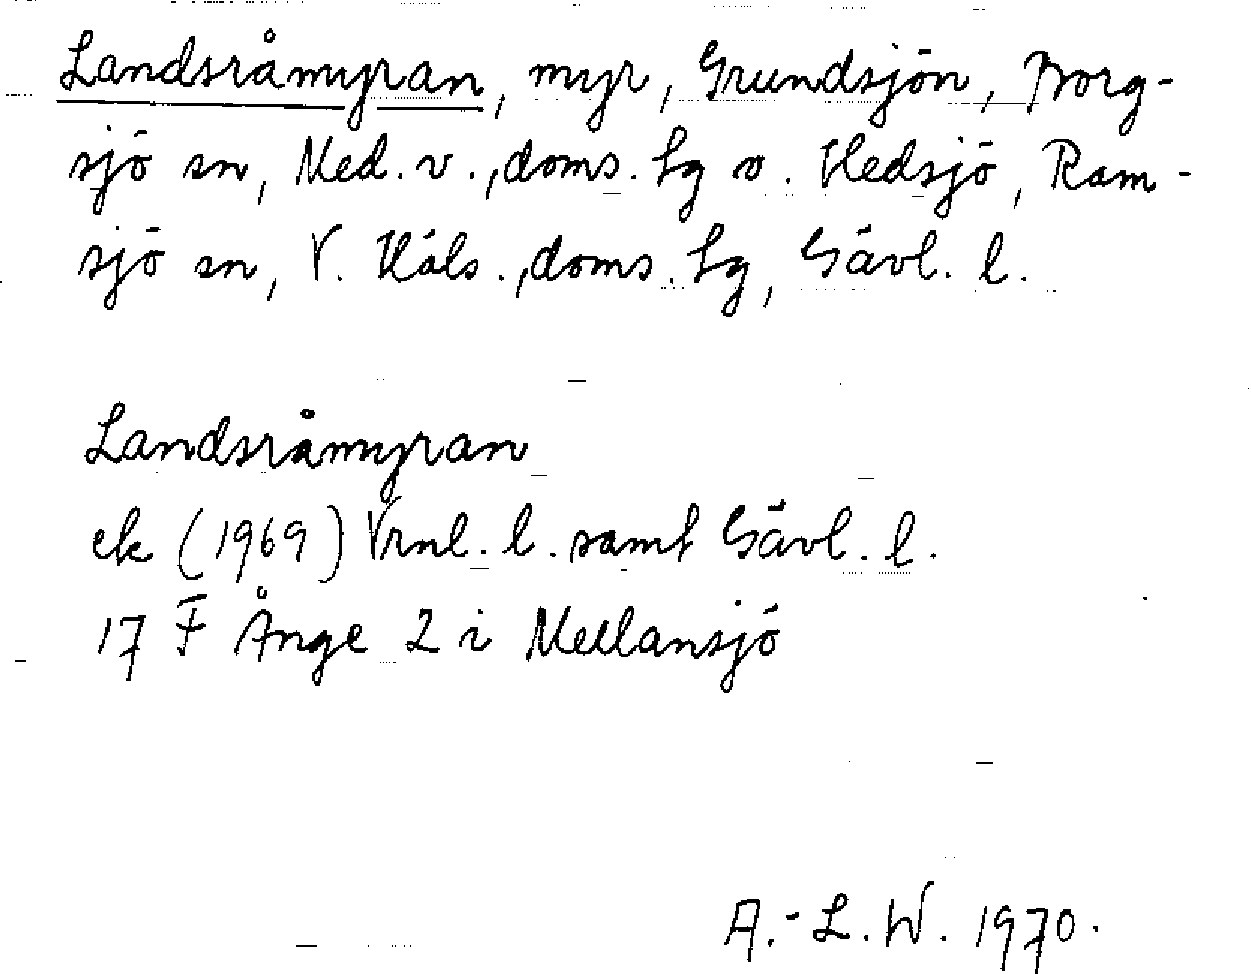 Landsråmyran, myr, Grundsjön, Borg-
sjö sn, Med. v., doms. hg o. Hedsjö, Ram-
sjö sn, V. Häls., doms. hg, Gävl. l.
Landsråmyran
ek (1969) Vrnl. l. samt Gävl. l.
17 F Ånge 2 i Mellansjö
A.-L. W. 1970.